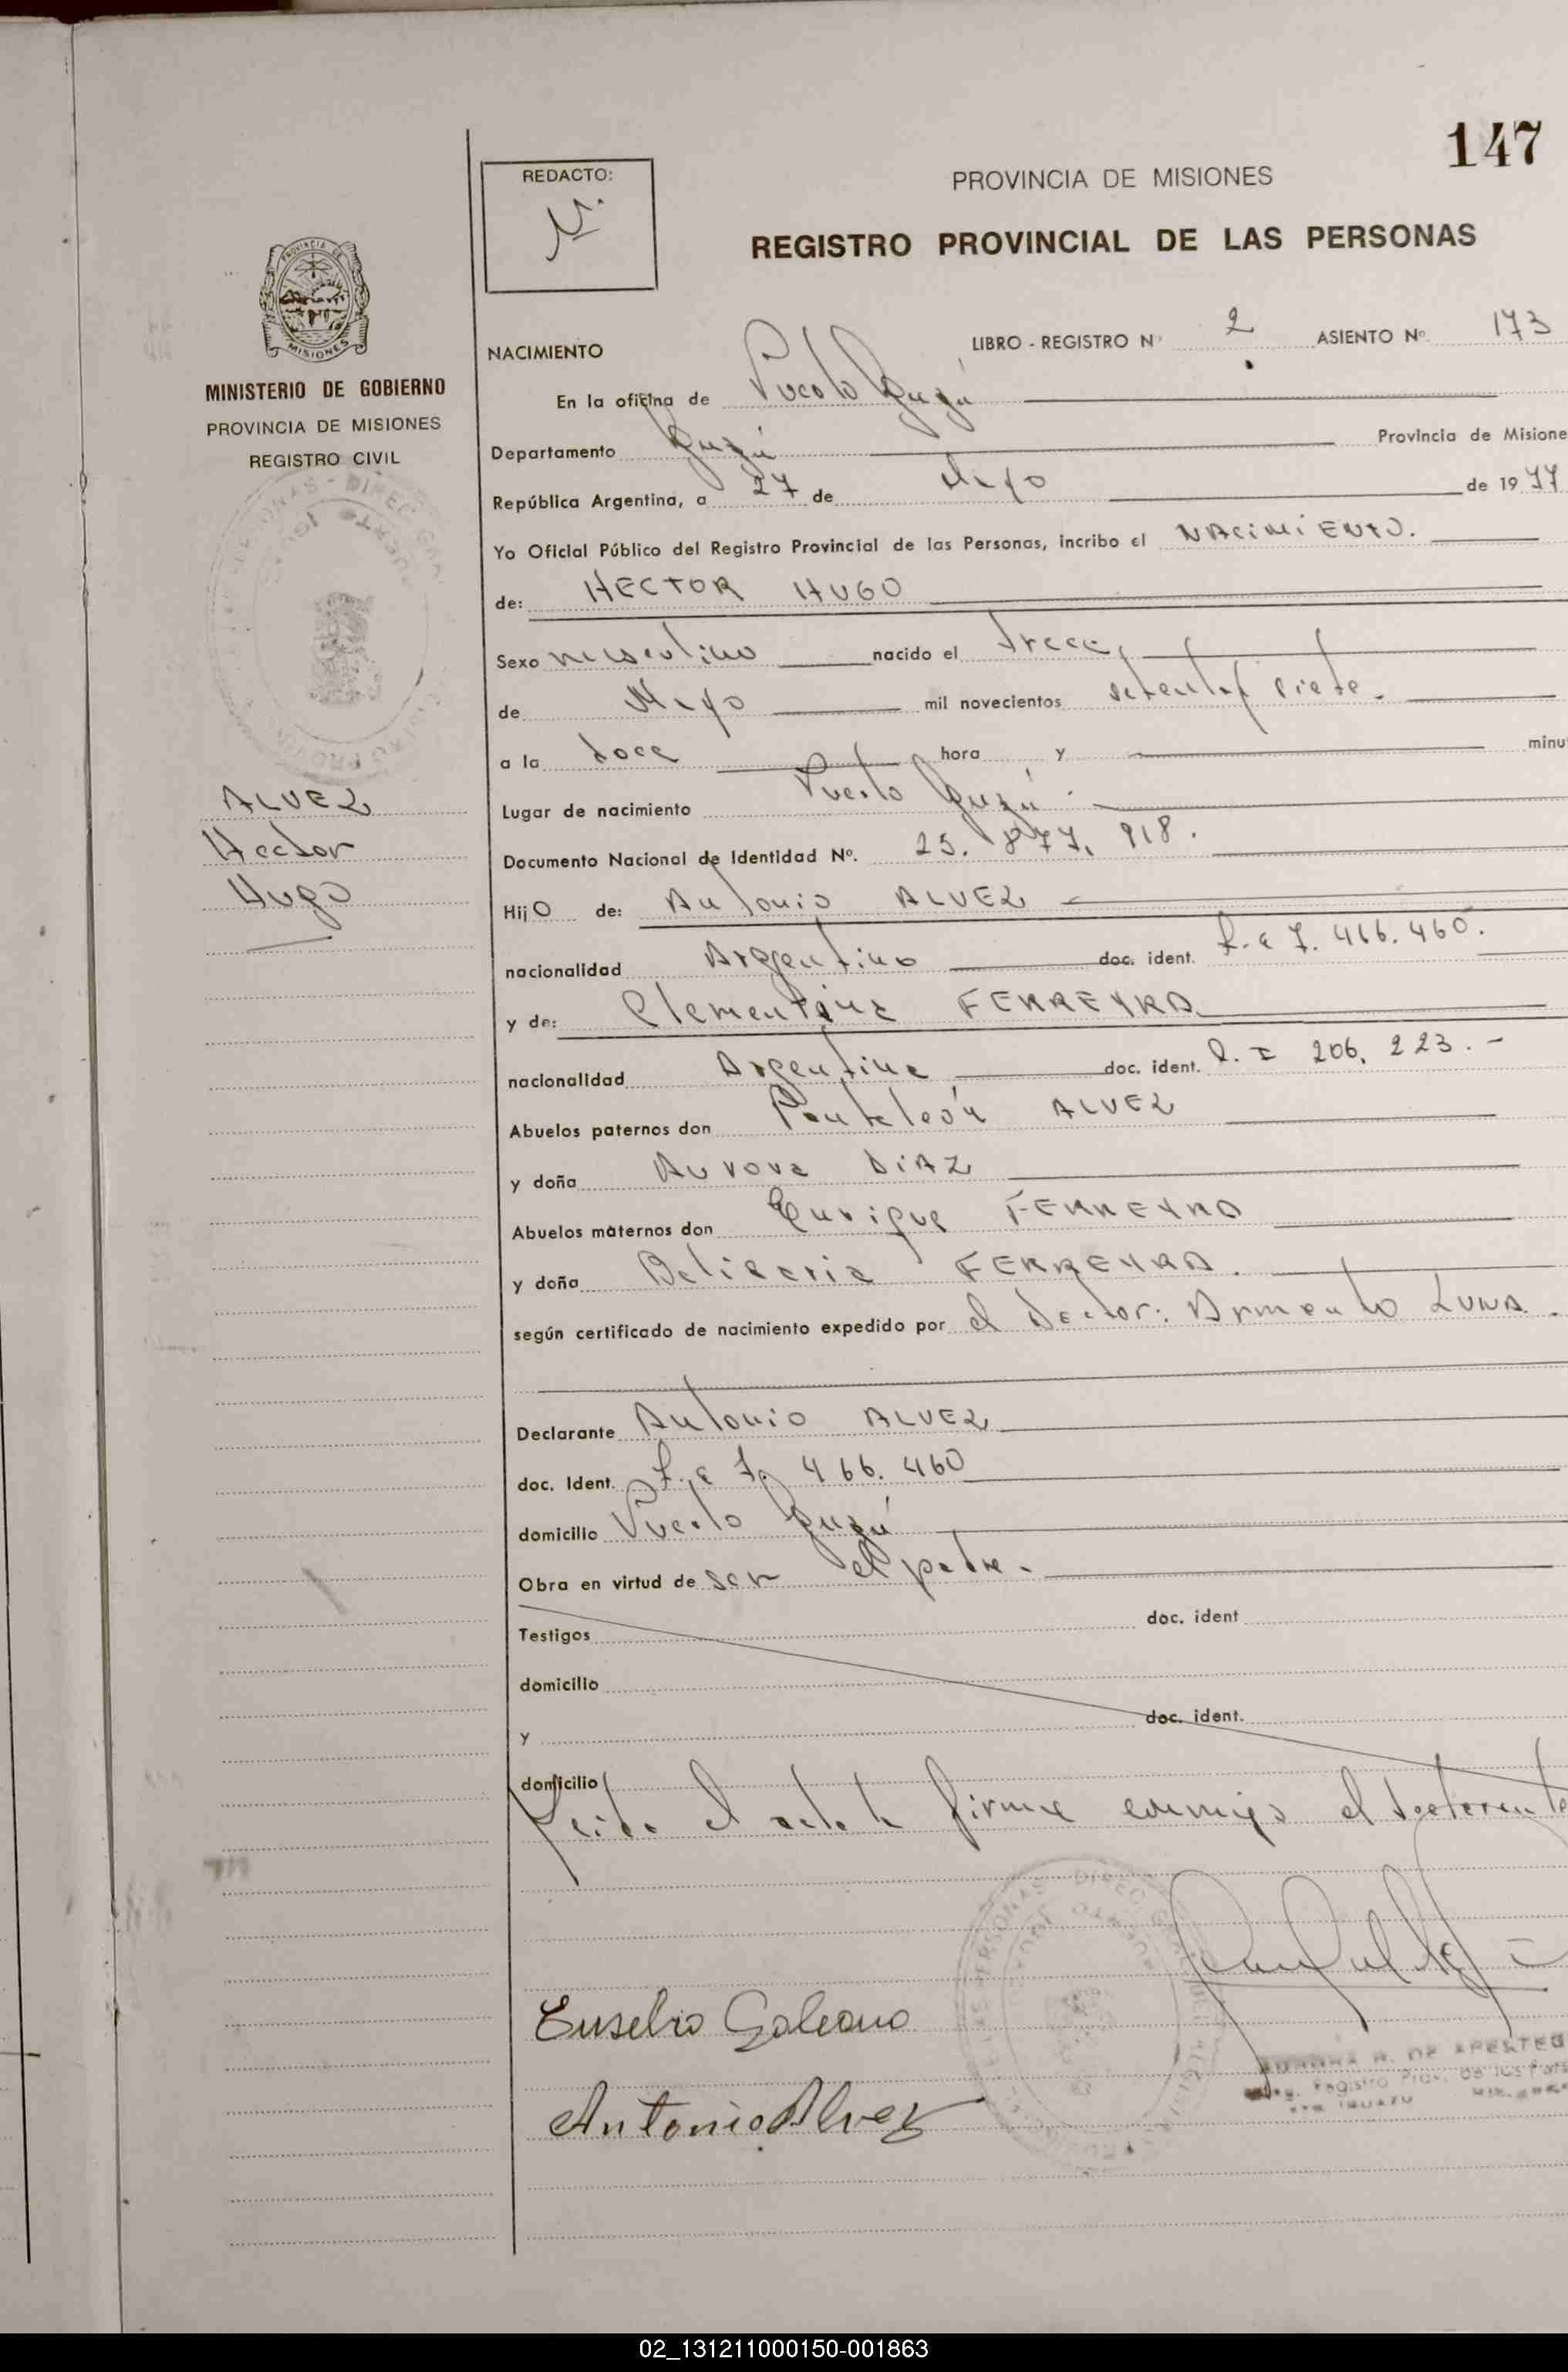 147
REDACTO:
PROVINCIA DE MISIONES
REGISTRO PROVINCIAL DE LAS PERSONAS
PROVINCIA DE
MISIONES
MINISTERIO DE GOBIERNO
PROVINCIA DE MISIONES
REGISTRO CIVIL
ALVEZ
Hector
Hugo
NACIMIENTO
LIBRO - REGISTRO Nº 2 ASIENTO Nº 173
En la oficina de Puerto Iguazú
Departamento Iguazú Provincia de Misione
República Argentina, a 27 de Mayo de 1977
Yo Oficial Público del Registro Provincial de las Personas, incribo el NACIMIENTO.
de: HECTOR HUGO
Sexo masculino nacido el trece,
de Mayo mil novecientos setenta y siete.
a la doce hora y minu
Lugar de nacimiento Puerto Iguazú.
Documento Nacional de Identidad Nº. 25.877.918.
HijO de: Antonio ALVEZ
nacionalidad Argentino doc. ident. L.E 7.466.460.
y de: Clementina FERREYRA
nacionalidad Argentina doc. ident. 206.223.-
Abuelos paternos don Pantaleón ALVEZ
y doña Aurora DIAZ
Abuelos maternos don Enrique FERREYRA
y doña FERREYRA.
según certificado de nacimiento expedido por el Doctor: LUNA.
Declarante Antonio ALVEZ
doc. Ident. L.E 7.466.460
domicilio Puerto Iguazú
Obra en virtud de ser el padre.
Testigos doc. ident
domicilio
y doc. ident.
domicilio
Leída el acta la firma conmigo el declarante
Eusebio Galeano
Antonio Alvez
02_131211000150-001863